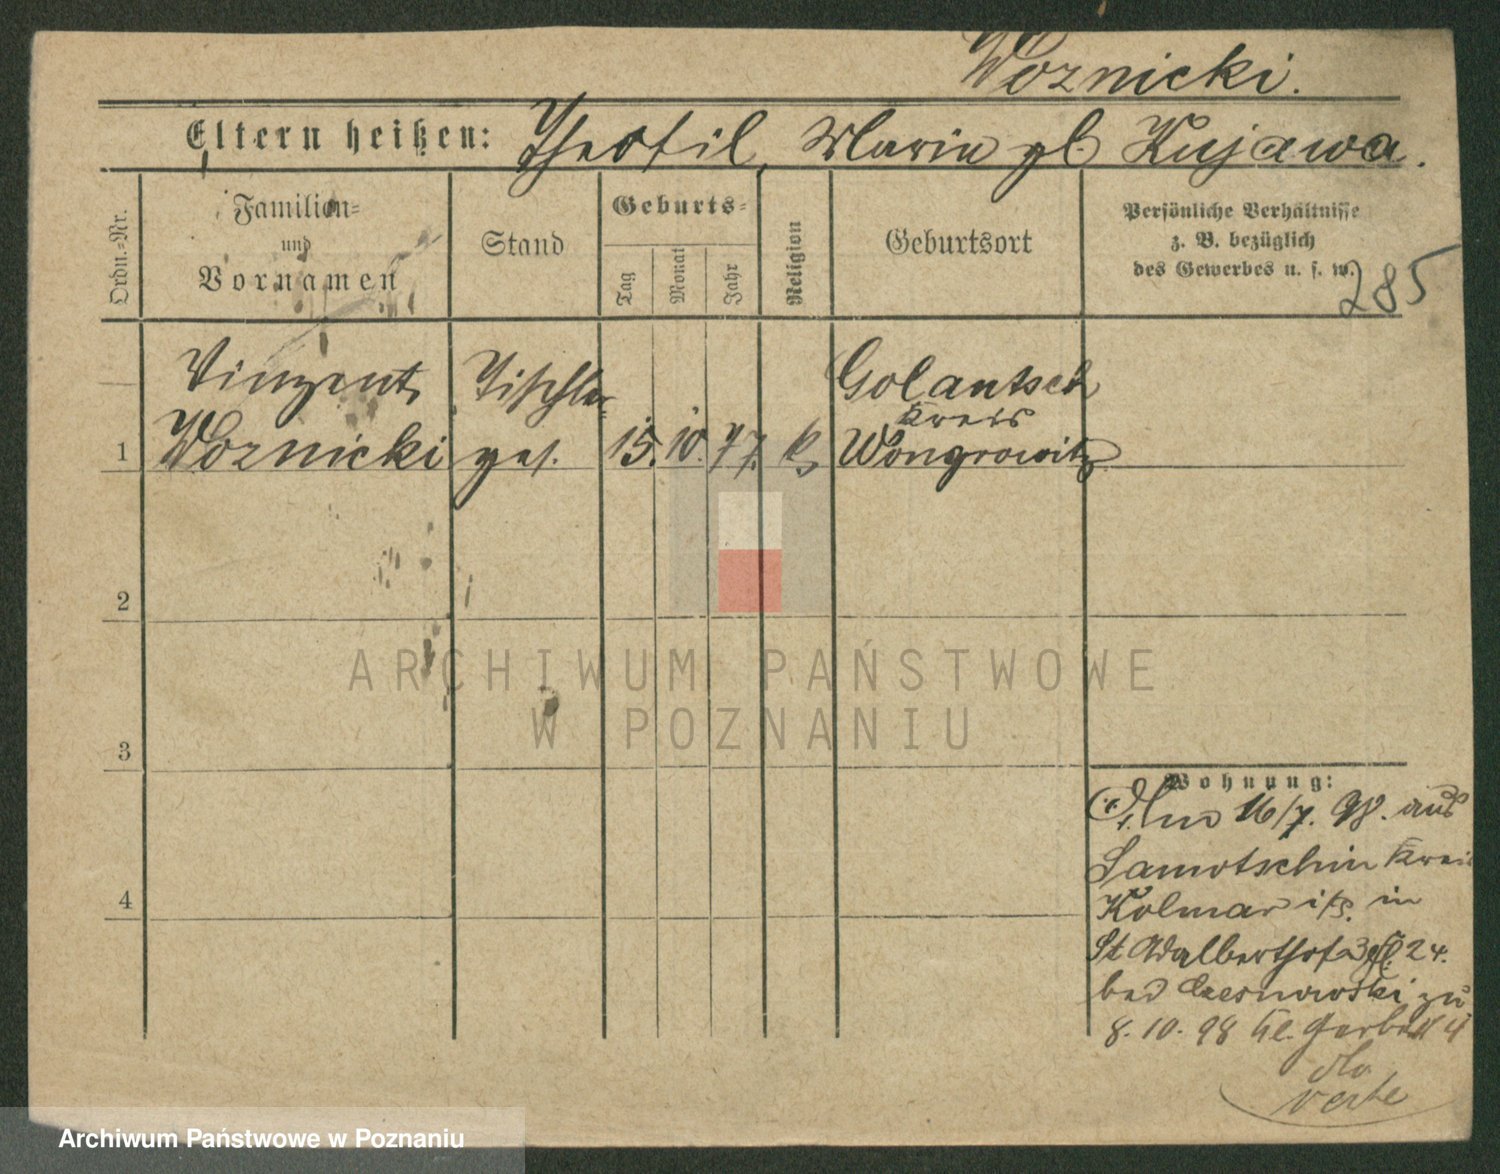 Woznicki.
Eltern heißen: Theofil, Maria gb. Kujawa.
Ordn.-Nr.
Familien-
und
Vornamen
Stand
Geburts-
Tag
Monat
Jahr
Religion
Geburtsort
Persönliche Verhältnisse
z. B. bezüglich
des Gewerbes u. s. w.
285
Vinzent
Woznicki
Tischler-
ges.
15. 10. 77. k
Golantsch
Kreis
Wongrowitz
1
2
3
4
ARCHIWUM PAŃSTWOWE
W POZNANIU
Wohnung:
16/7. 98. aus
Samotschin Kreis
Kolmar i/P. in
St Adalberthof 24.
bei zu
8.10.98 Kl. Gerberst 4
verte
Archiwum Państwowe w Poznaniu